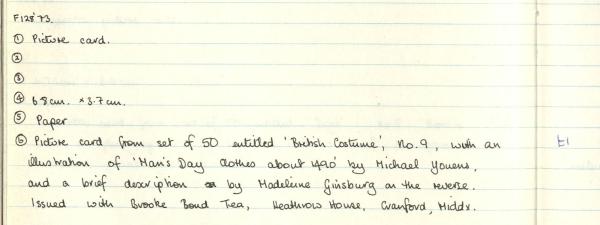 F128'73.
① Picture card.
②
③
④ 6.8cm. × 3.7cm.
⑤ Paper
⑥ Picture card from set of 50 entitled 'British Costume', No. 9, with an
illustration of 'Man's Day Clothes about 1490' by Michael Youens,
and a brief description by Madeleine Ginsburg on the reverse.
Issued with Brooke Bond Tea, Heathrow House, Cranford, Middx.